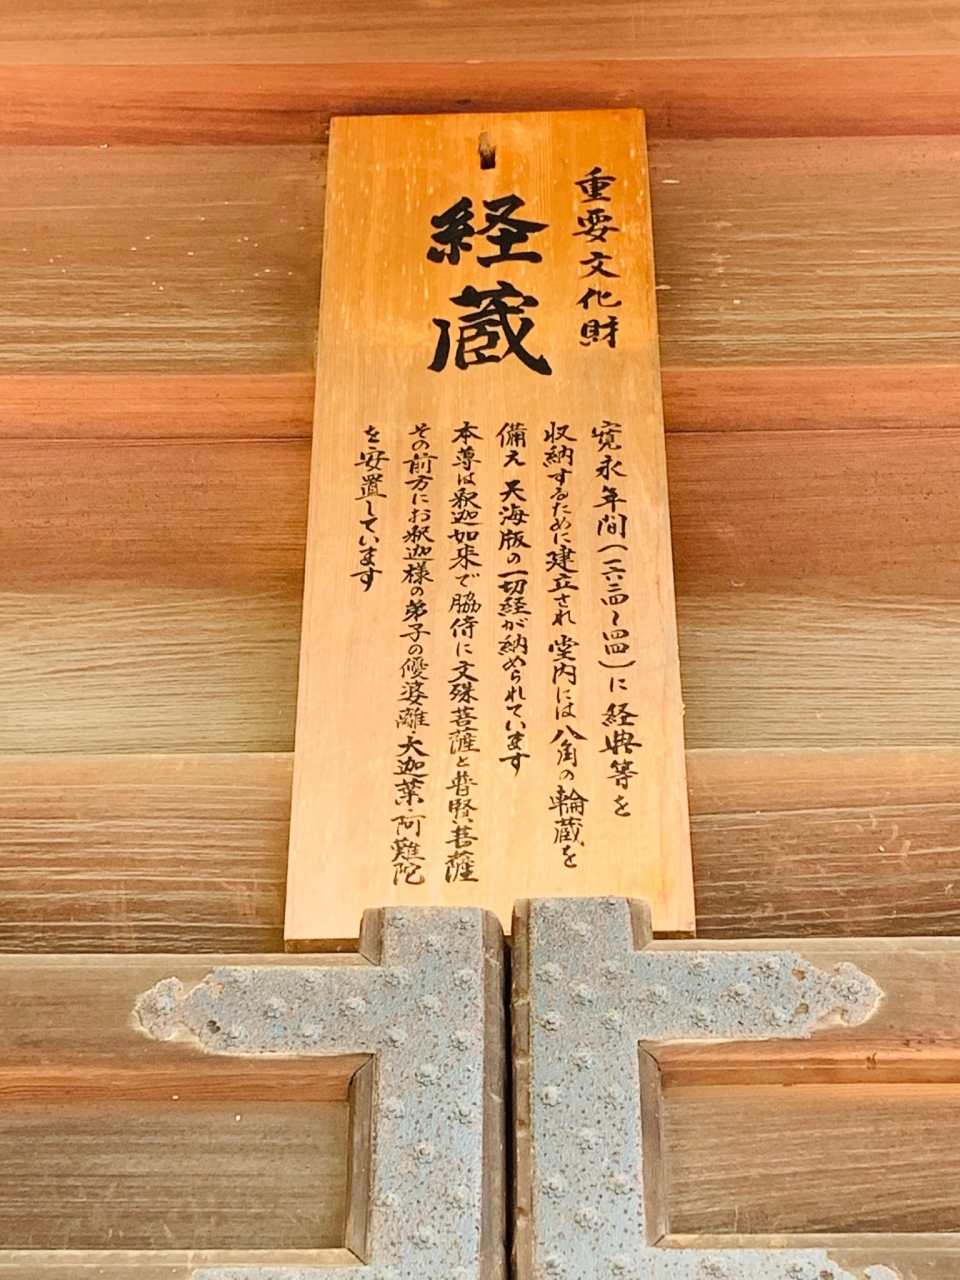 重要文化財
経蔵
寛永年間(一六二四〜四四)に経典等を
収納するために建立され 堂内には八角の輪蔵を
備え 天海版の一切経が納められています
本尊は釈迦如来で脇侍に文殊菩薩と普賢菩薩
その前方にお釈迦様の弟子の優婆離・大迦葉・阿難陀
を安置しています